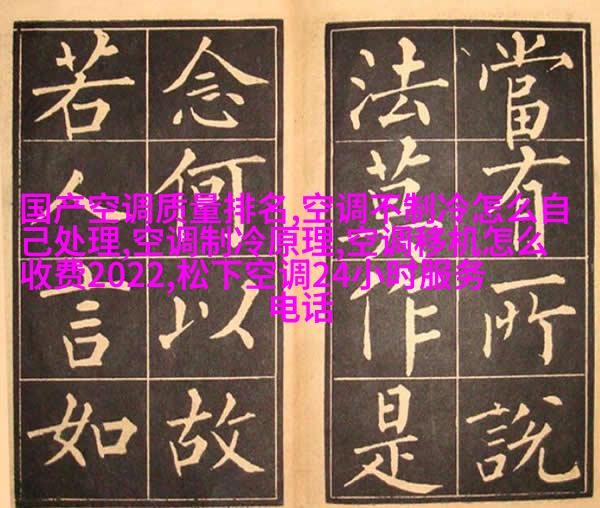 當有所說
法莫作是
念何以故
若人言如
国产空调质量排名,空调不制冷怎么自
己处理,空调制冷原理,空调移机怎么
收费2022,松下空调24小时服务
电话